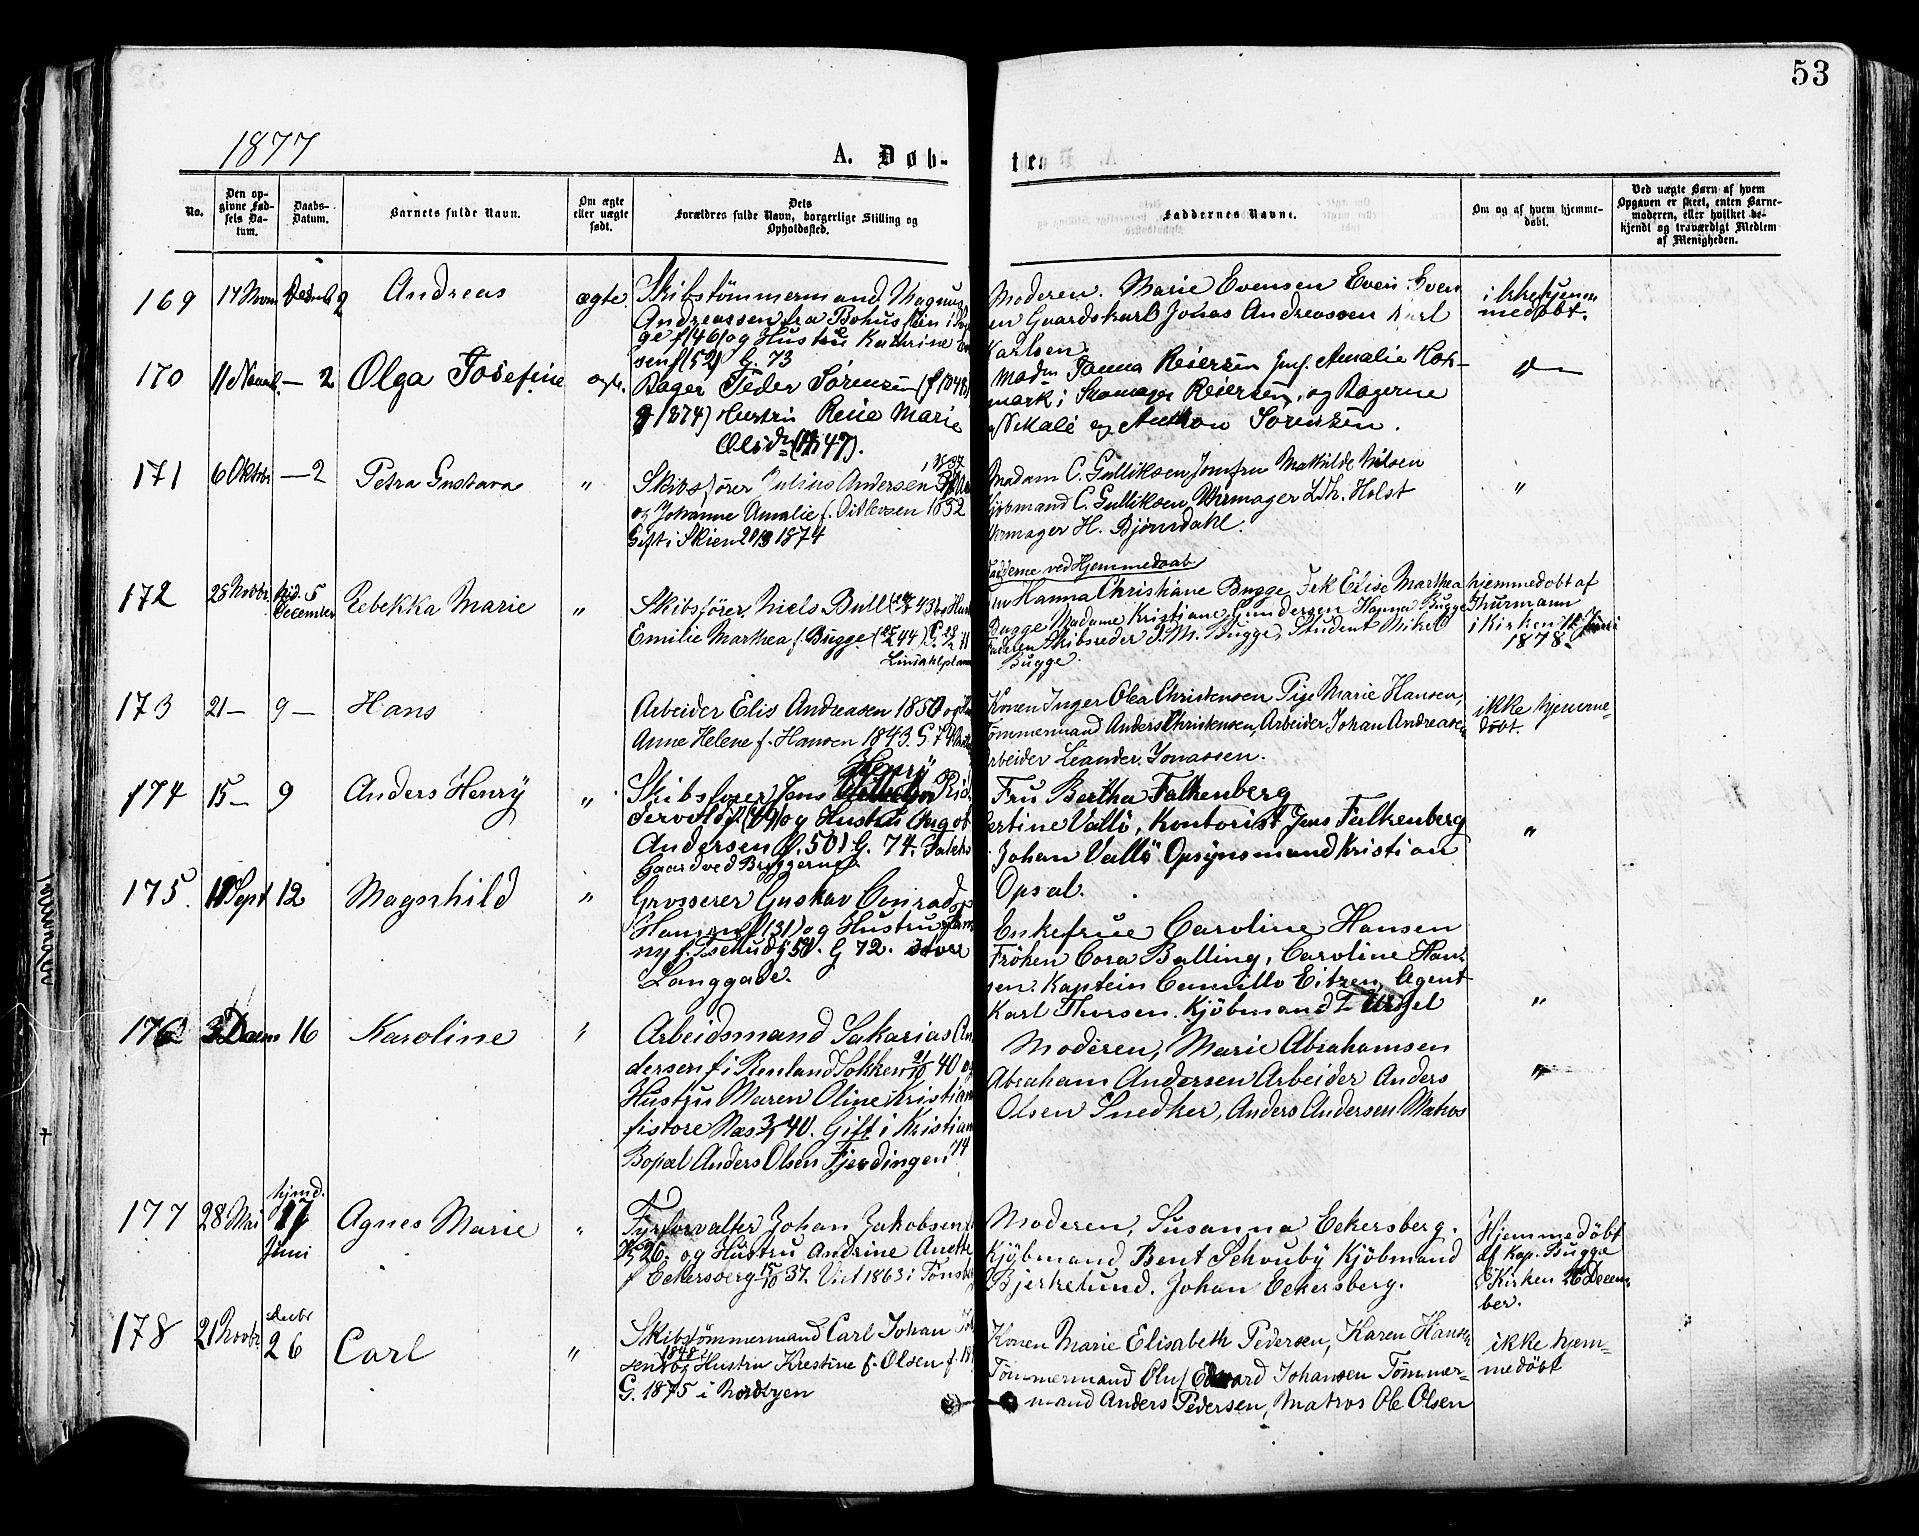 53
1877
A. Døb-
ten
No.
Den op-
givne Fød-
sels Da-
tum.
Daabs-
Datum.
Barnets fulde Navn.
Om ægte
eller uægte
født.
Dets
Forældres fulde Navn, borgerlige Stilling og
Opholdssted.
Faddernes Navne.
Om og af hvem hjemme-
døbt.
Ved uægte Børn af hvem
Opgaven er skeet, enten Barne-
moderen, eller hvilket be-
kjendt og troværdigt Medlem
af Menigheden.
169 17 2 Andreas ægte. Skibstømmermand Magnus
Andreassen fra Bohus
f (46) og Hustru Kathrine
sen f (52) G. 73
Moderen. Marie Evensen Even Even
en Gaardskarl Jonas Andreassen Karl
Karlsen
ikke hjem
medøbt.
170 11 — 2 Olga Josefine ægte. Bager Peder Sørensen
1874) Hustru Marie
Olsdn (f 47).
Madm Reiersen Amalie Hol-
mark; Skomager Reiersen, og Bagerne
og Anthon Sorensen.
171 6 Oktbr — 2 Petra Gustava " Skibsfører Julius Andersen 1837
og Johanne Amalie f. Ditlevsen 1852
Gift i Skien 1874
Madam C. Gulliksen Jomfru Mathilde Nilsen
Kjøbmand C. Gulliksen, Uhrmager L. Th. Holst
Uhrmager H. Bjørnsdahl.
"
172 28 Novbr hjd. 5
December Rebekka Marie " Skibsfører Niels Bull
Emilie Marthea f. Bugge
Fadderne ved Hjemmedaab
Hanna Christiane Bugge, Frk Elise Marthea
Bugge Madame Kristiane Gundersen Hanna Bugge
Faderen Skibsreder J. M. Bugge, Student Mikel
Bugge.
hjemmedøbt af
Thurmann
i Kirken 12 Juni
1878.
173 21— 9— Hans Arbeider Elis Andreasen 1850 og
Anne Helene f. Hansen 1843. G. 74
Konen Inger Olea Christensen, Pige Marie Hansen,
Tømmermand Anders Christensen, Arbeider Johan Andreasen
Arbeider Leander Jonassen.
ikke hjemme-
døbt.
174 15— 9 Anders Henry " Skibsfører Jens Henry Rid-
dervold f (49) og Hustru Ingeb.
Andersen f. 50) G. 74.
Gaard ved Bryggerne
Fru Bertha Falkenberg
Bertine Vallö, Kontorist Jens Falkenberg
Johan Vallö Opsynsmand Kristian
Opsal.
"
175. 11 Sept 12 Magnhild " Grosserer Gustav Conrad
Hansen f (31) og Hustru Fan
ny f. Tschudy 50. G 72. Store
Langgade.
Enkefrue Caroline Hansen
Frøken Cora Balling, Caroline Han-
sen. Kaptein Camillo Eitzen, Agent
Karl Thorsen. Kjöbmand
"
176 3 Decem 16 Karoline " Arbeidsmand Sakarias An
dersen f i Renland Sokken 21/10 40 og
Hustru Maren Oline Kristian
f i store Næs 40. Gift i Kristian
Bopæl Anders Olsen Fjerdingen 74
Moderen, Marie Abrahamsen
Abraham Andersen Arbeider Anders
Olsen Snedker, Anders Andersen Matros
"
177 28 Mai hjmd.
17
Juni Agnes Marie " Fyrforvalter Johan Jakobsen
26. og Hustru Andrine Anette
f Eckersberg 15/10 37. Viet 1863 i Tønsb
Moderen, Susanna Eckersberg.
Kjøbmand Bent Schouby Kjöbmand
Bjerkelund. Johan Eckersberg.
Hjemmedøbt
af Kap. Bugge
i Kirken 26 Decem
ber.
178 21 Novbr Decbr
26 Carl " Skibstömmermand Carl Johan
sen 1848 og Hustru Krestine f. Olsen f. 18
G. 1875 i Nordbyen
Konen Marie Elisabeth Pedersen, Karen Hansen
Tömmermand Oluf Edvard Johansen Tømmer-
mand Anders Pedersen, Matros Ole Olsen
ikke hjem-
medöbt